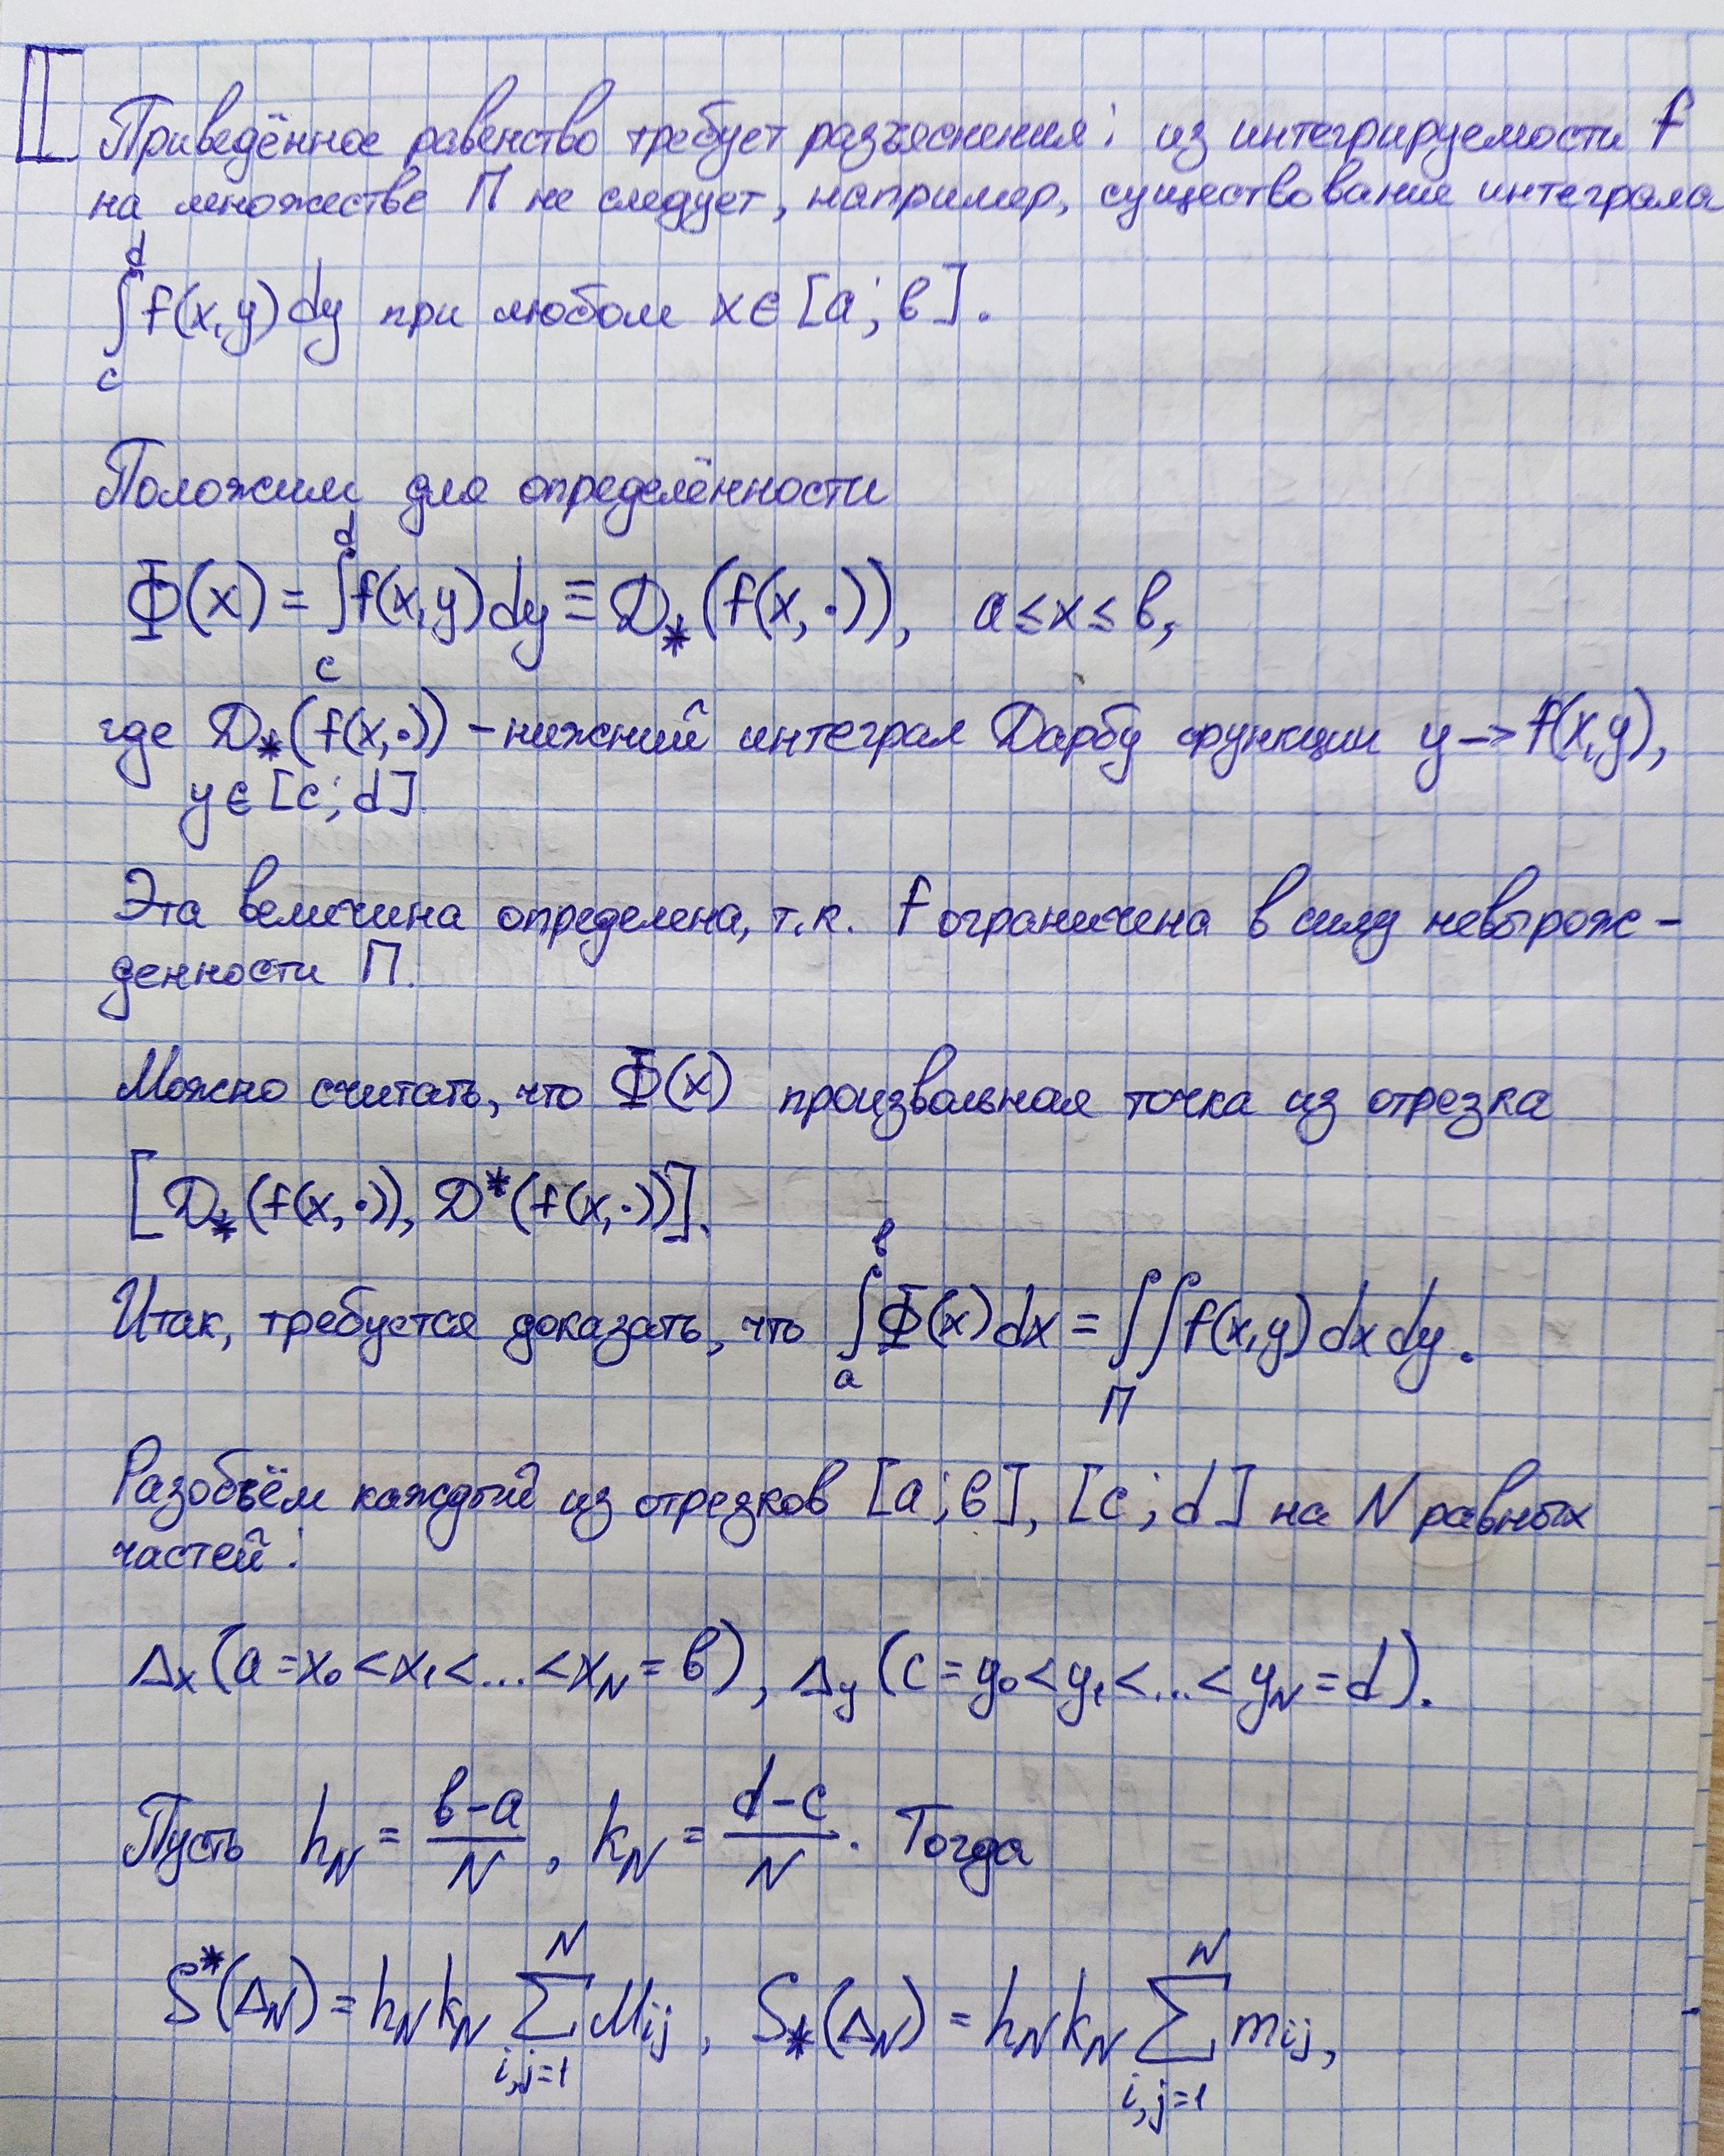 Приведённое равенство требует разъяснения: из интегрируемости f
на множестве П не следует, например, существование интеграла
∫_c^d f(x,y) dy при любом x∈[a;b].
Положим для определённости
Φ(x) = ∫_c^d f(x,y) dy ≡ D_*(f(x,·)), a≤x≤b,
где D_*(f(x,·)) – нижний интеграл Дарбу функции y→f(x,y),
y∈[c;d].
Эта величина определена, т.к. f ограничена в силу невырож-
денности П.
Можно считать, что Φ(x) произвольная точка из отрезка
[D_*(f(x,·)), D^*(f(x,·))].
Итак, требуется доказать, что ∫_a^b Φ(x) dx = ∫∫_П f(x,y) dx dy.
Разобьём каждый из отрезков [a;b], [c;d] на N равных
частей:
Δ_x (a=x_0<x_1<...<x_N=b), Δ_y (c=y_0<y_1<...<y_N=d).
Пусть h_N = (b-a)/N, k_N = (d-c)/N. Тогда
S^*(Δ_N) = h_N k_N ∑_{i,j=1}^N M_ij, S_*(Δ_N) = h_N k_N ∑_{i,j=1}^N m_ij,